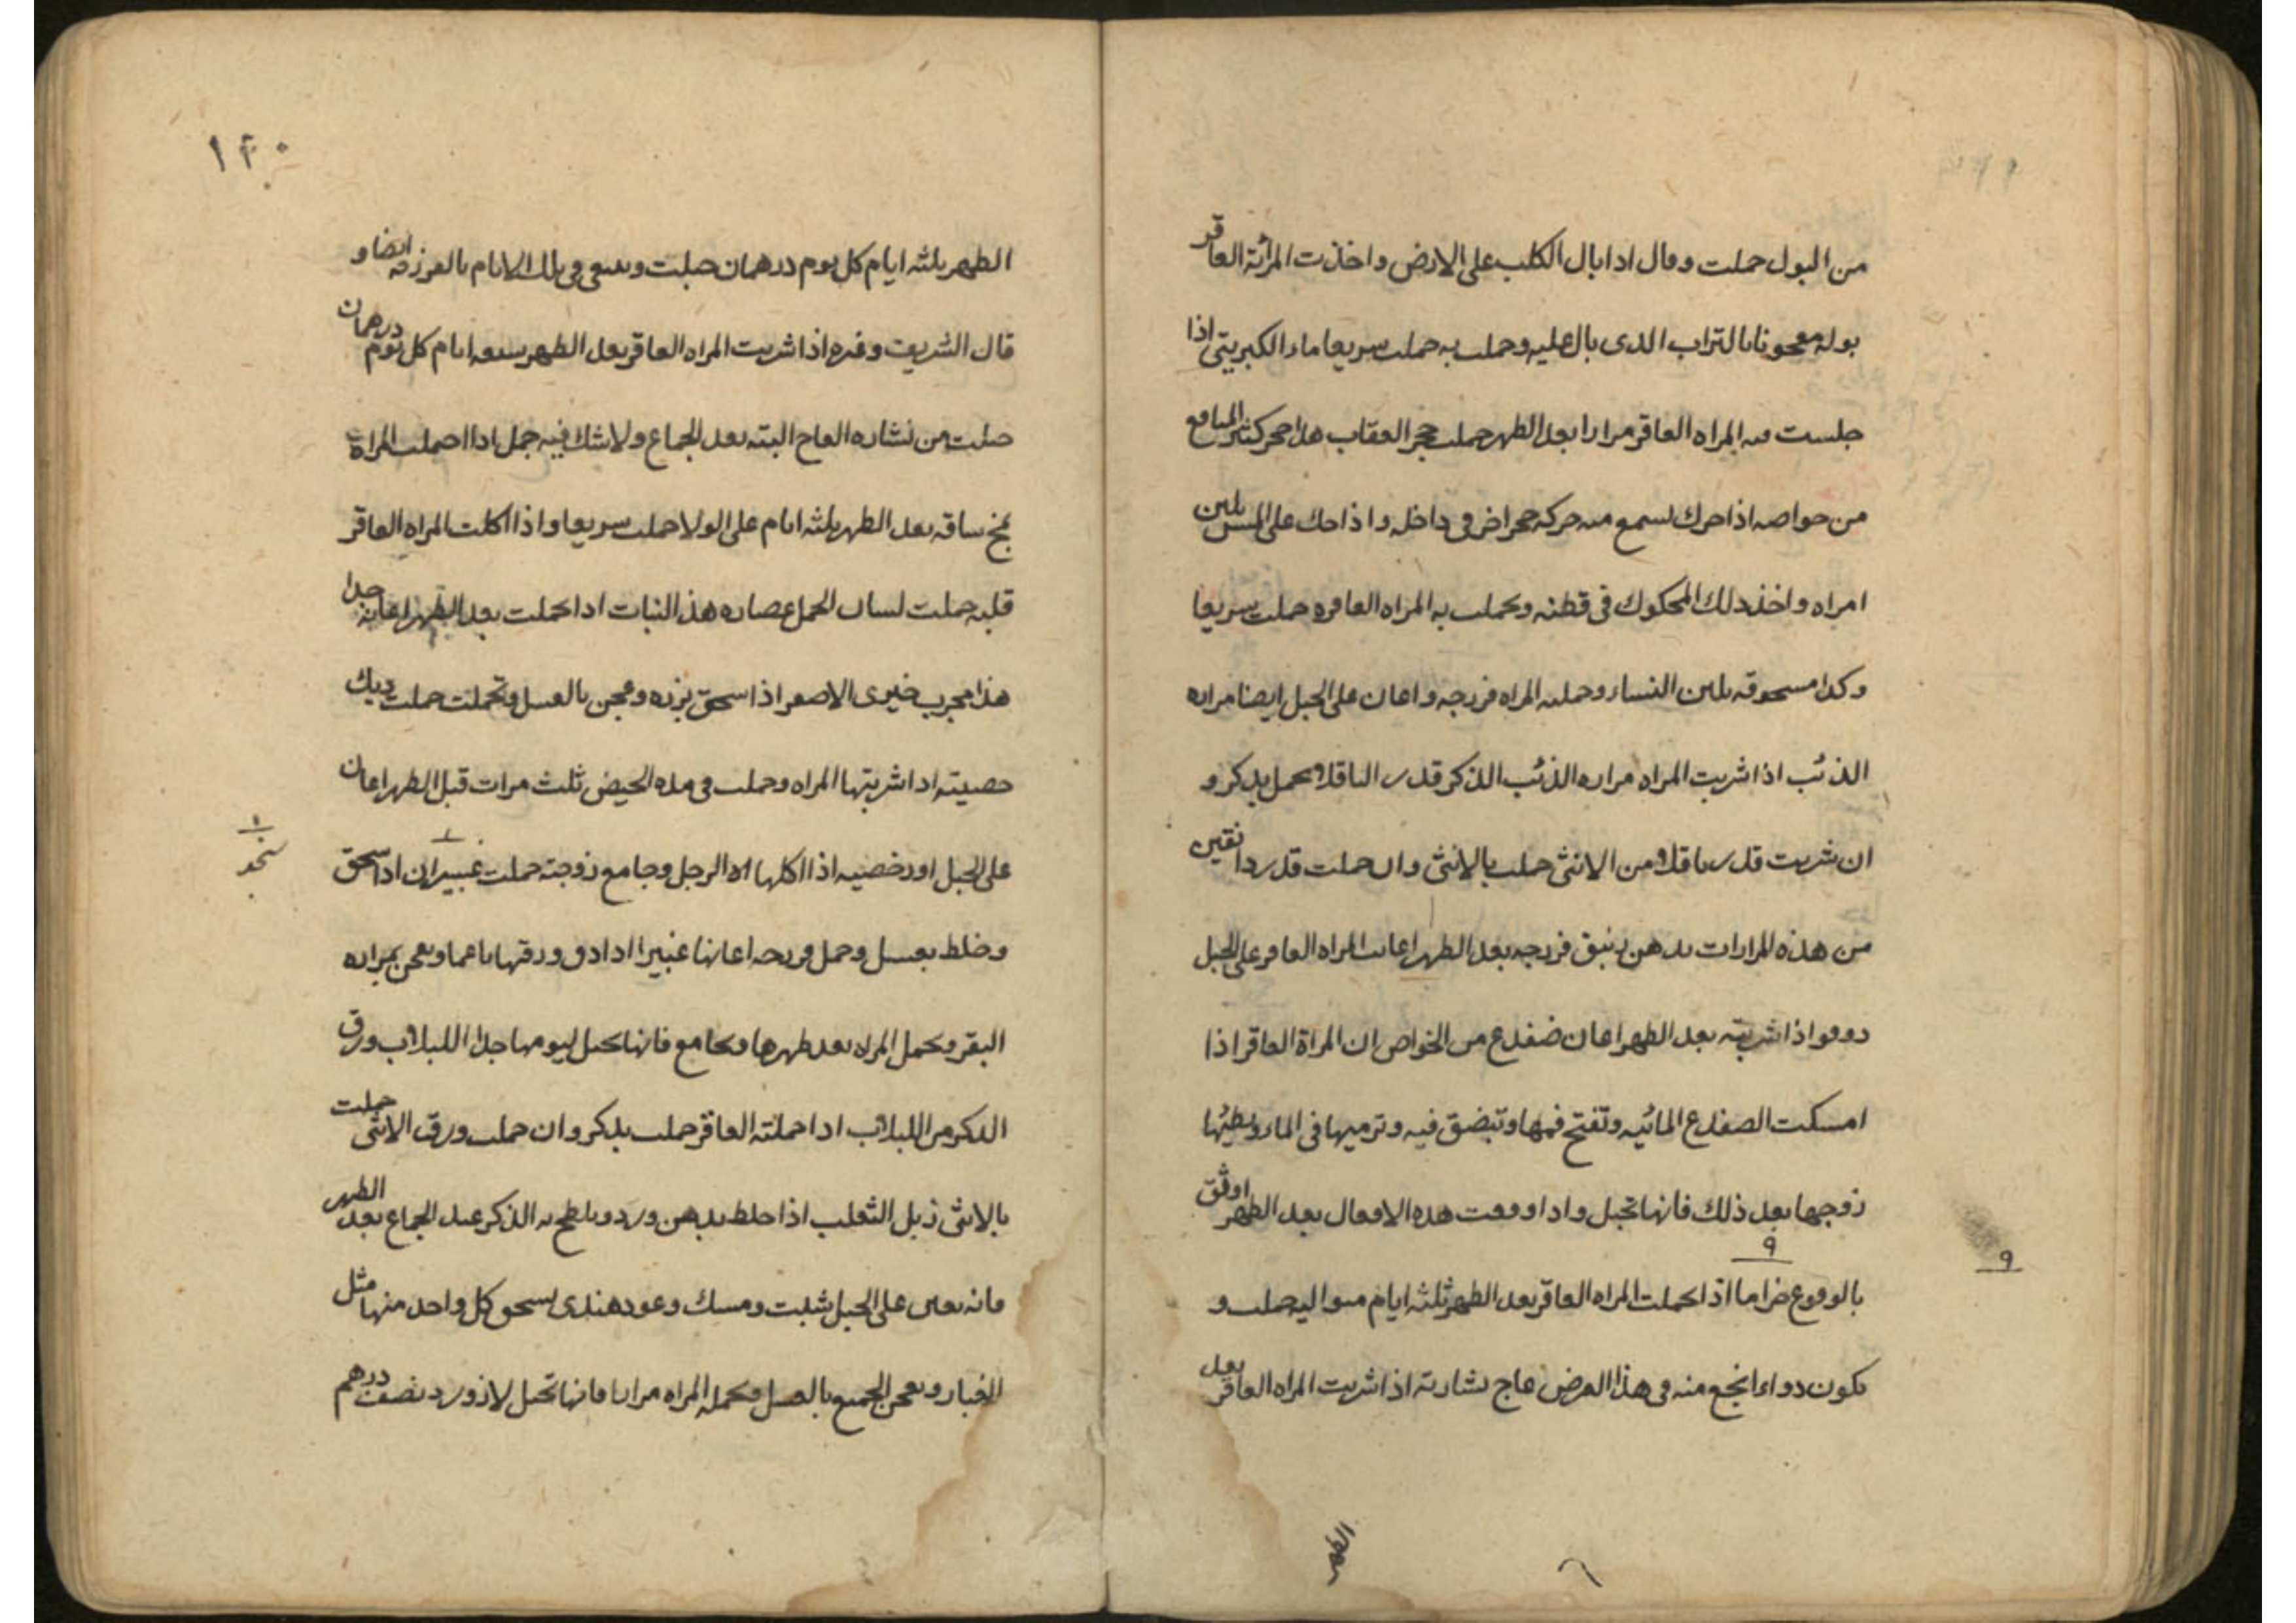 من البول حملت وقال اذا بال الكلب على الارض واخذت المرئة العاقر
بوله معجونا بالتراب الذى بال عليه وحملت به حملت سريعا ماء الكبريتى اذا
جلست فيه المراه العاقر مرارا بعد الطهر حملت حجر العقاب هذا حجر كثير المنافع
من خواصه اذا حرك لسمع منه حركه حجر اخر فى داخله واذا حك على المسن بلبن
امراه واخذ ذلك المحكوك فى قطنه وتحملت به المراه العاقره حملت سريعا
وكذا مسحوقه بلبن النساء وحملته المراه فرزجه واعان على الحبل ايضا مراره
الذئب اذا شربت المراه مراره الذئب الذكر قدر الباقلا تحمل بذكر و
ان شربت قدر باقلا من الانثى حملت بالانثى وان حملت قدر دانقين
من هذه المرارات بدهن زنبق فرزجه بعد الطهر اعانت المراه العاقر على الحبل
دوقو اذا شربته بعد الطهر اعان ضفدع من الخواص ان المراة العاقر اذا
امسكت الضفدع المائيه وتفتح فمها وتبضق فيه وترميها فى الماء ويطيئها
زوجها بعد ذلك فانها تحبل واذا اوقعت هذه الافعال بعد الطهر اوثق
۹
۹
بالوقوع خراما اذا تحملت المراه العاقر بعد الطهر ثلثه ايام متواليه حملت و
يكون دواء انجع منه فى هذا المرض عاج نشارته اذا شربت المراه العاقر بعد
الطهر
۱۴۰
الطهر ثلثه ايام كل يوم درهمان حبلت وينبغى فى تلك الايام بالفرزجه ايضا و
قال الشريف وغيره اذا شربت المراه العاقر بعد الطهر سبعه ايام كل يوم درهمان
حبلت من نشاره العاج البته بعد الجماع ولا شك فيه جمل اذا احملت المراة
مخ ساقه بعد الطهر ثلثه ايام على الولا حملت سريعا واذا اكلت المراه العاقر
قلبه حملت لسان الحمل عصاره هذا النبات اذا تحملت بعد الطهر اعانه جدا
هذا مجرب خيرى الاصفر اذا سحق بزره وعجن بالعسل وتحملت حملت ديك
خصيته اذا شربتها المراه وحملت فى مده الحيض ثلث مرات قبل الطهر اعان
على الحبل اوز خصيه اذا اكلها الرجل وجامع زوجته حملت غبيران اذا سحق
وخلط بعسل وحمل فرزجه اعانها غبيرا اذا دق ورقها ناعما ويعجن بمراره
البقر وتحمل المراه بعد طهرها وتجامع فانها تحبل ليومها جدا اللبلاب ورق
الذكر من اللبلاب اذا حملته العاقر حملت بذكر وان حملت ورق الانثى حملت
بالانثى زبل الثعلب اذا خلط بدهن ورد ويلطخ به الذكر عند الجماع بعد الطهر
فانه يعين على الحبل شبت ومسك وعود هندى يسحق كل واحد منها مثل
الغبار ويعجن الجميع بالعسل وتحمله المراه مرارا فانها تحبل لازورد نصف درهم